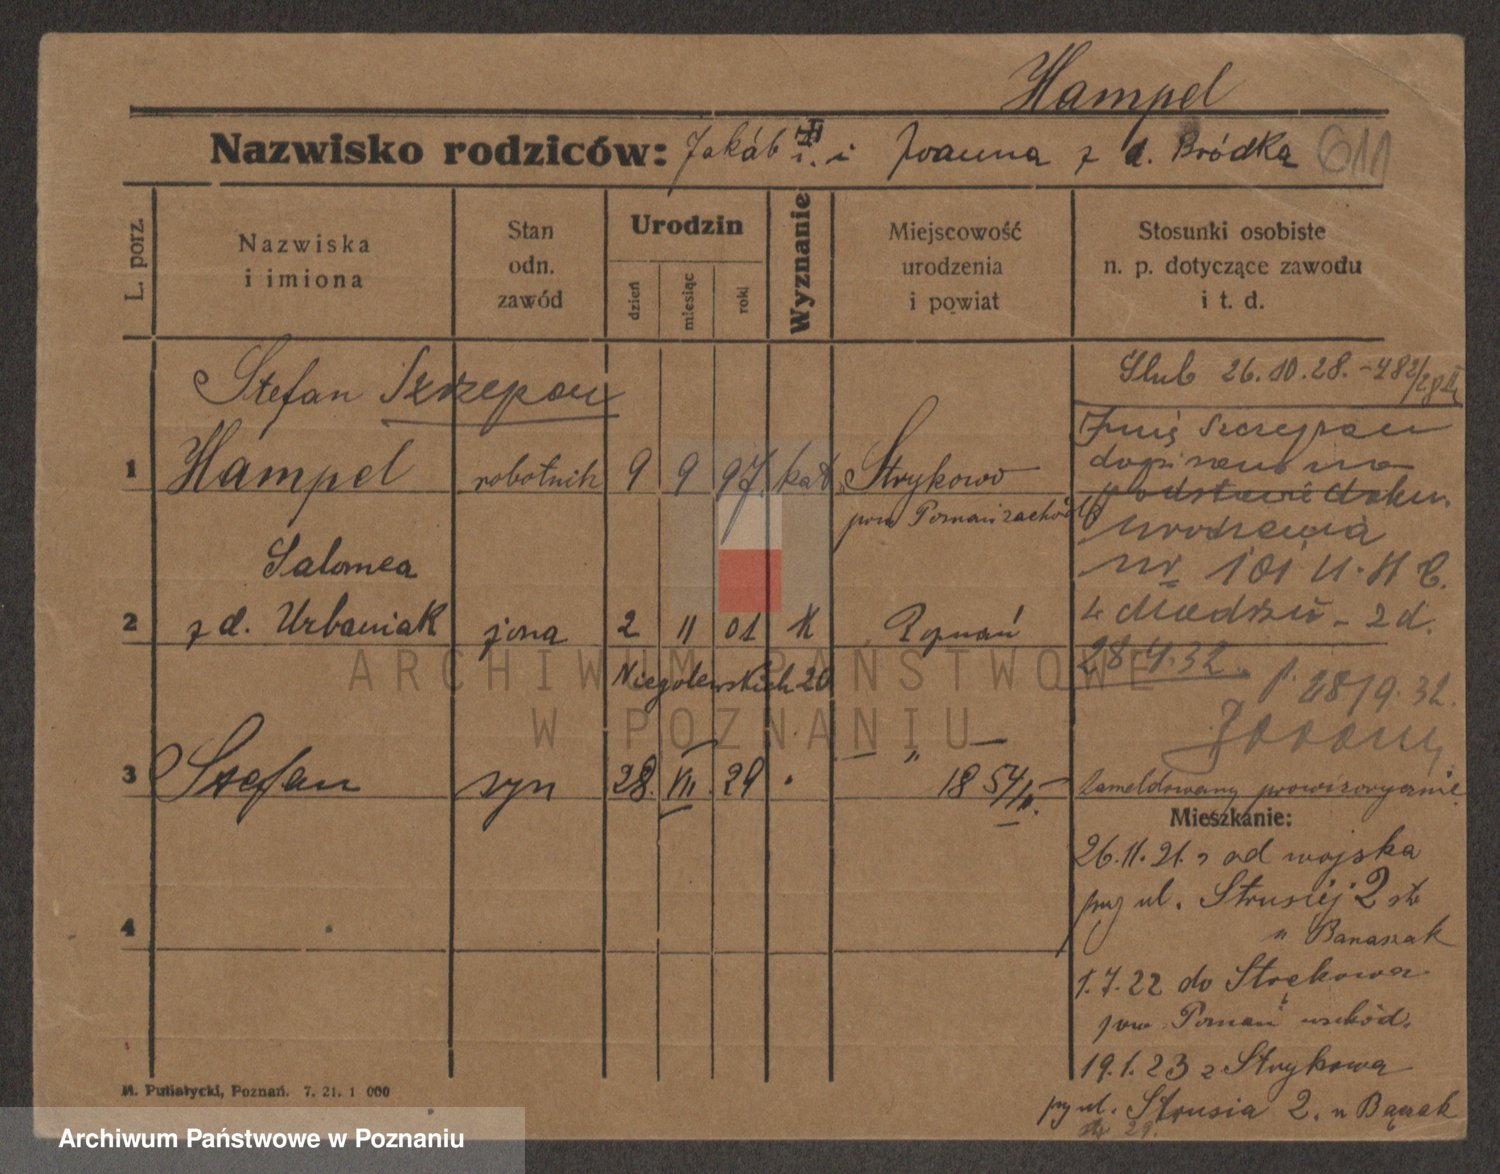 Hampel
Nazwisko rodziców: Jakób i Joanna z d. Bródka 611
L. porz.
Nazwiska
i imiona
Stan
odn.
zawód
Urodzin
dzień
miesiąc
roki
Wyznanie
Miejscowość
urodzenia
i powiat
Stosunki osobiste
n. p. dotyczące zawodu
i t. d.
Stefan Szczepan
1 Hampel robotnik 9 9 97. kat Strykowo
pow Poznań zachód
Salomea
2 z d. Urbaniak żona 2 11 01 K Poznań
Niegolewskich 20
3 Stefan syn 28. XII. 29 "
18 54/
4
Ślub 26.10.28. - 782/28 II
Imię Szczepan
dopisano na
podstawie dokum.
urodzenia
nr 101 U.
2 d.
28.9.32.
28/9.32.
zameldowany prowizorycznie
Mieszkanie:
26.11.21. z od wojska
przy ul. Strusiej 2 str
u Banaszak
1.7.22 do Strękowa
pow. Poznań wschód.
19.1.23 z Strykowa
przy ul. Strusia 2. u Banaszak
29.
M. Putiatycki, Poznań. 7. 21. 1 000
ARCHIWUM PAŃSTWOWE
W POZNANIU
Archiwum Państwowe w Poznaniu